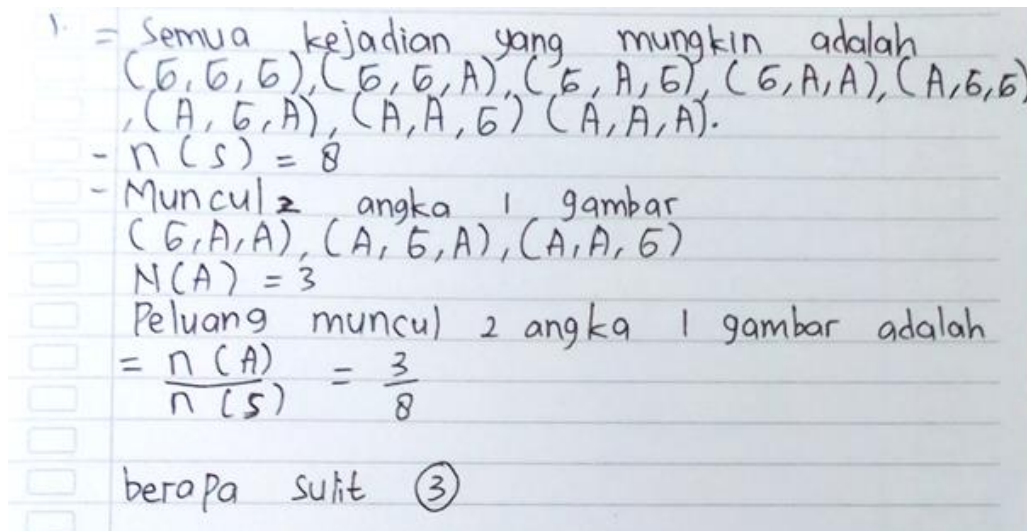 1. = Semua kejadian yang mungkin adalah
(G, G, G), (G, G, A), (G, A, G), (G, A, A), (A, G, G)
, (A, G, A), (A, A, G) (A, A, A).
- n(S) = 8
- Muncul 2 angka 1 gambar
(G, A, A), (A, G, A), (A, A, G)
N(A) = 3
Peluang muncul 2 angka 1 gambar adalah
= n(A)/n(S) = 3/8
berapa sulit ③